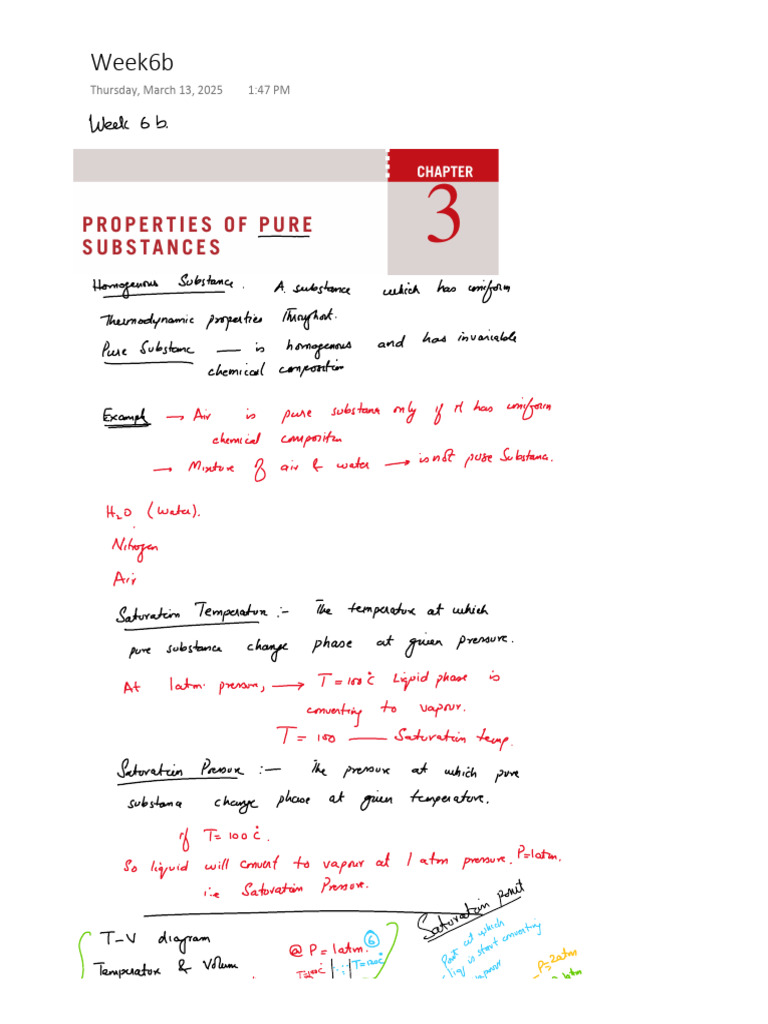 Week6b
Thursday, March 13, 2025 1:47 PM
Week 6 b.
CHAPTER
3
PROPERTIES OF PURE
SUBSTANCES
Homogenous Substance. A substance which has uniform
Thermodynamic properties throughout.
Pure Substanc — is homogenous and has invariable
chemical composition
Example → Air is pure substance only if it has uniform
chemical composition
→ Mixture of air & water → is not pure Substance.
H2O (Water).
Nitrogen
Air
Saturation Temperature :- The temperature at which
pure substance change phase at given pressure.
At 1atm. pressure, → T = 100°C Liquid phase is
converting to vapour.
T = 100 — Saturation temp.
Saturation Pressure :— The pressure at which pure
substance change phase at given temperature.
if T= 100°C.
So liquid will convert to vapour at 1 atm pressure. P=1atm.
i.e Saturation Pressure.
Saturation point
T-V diagram
@ P = 1atm. 6
Point at which
liq is start converting
vapour
Temperature & Volum
T=100°C T=100°C
P=2atm